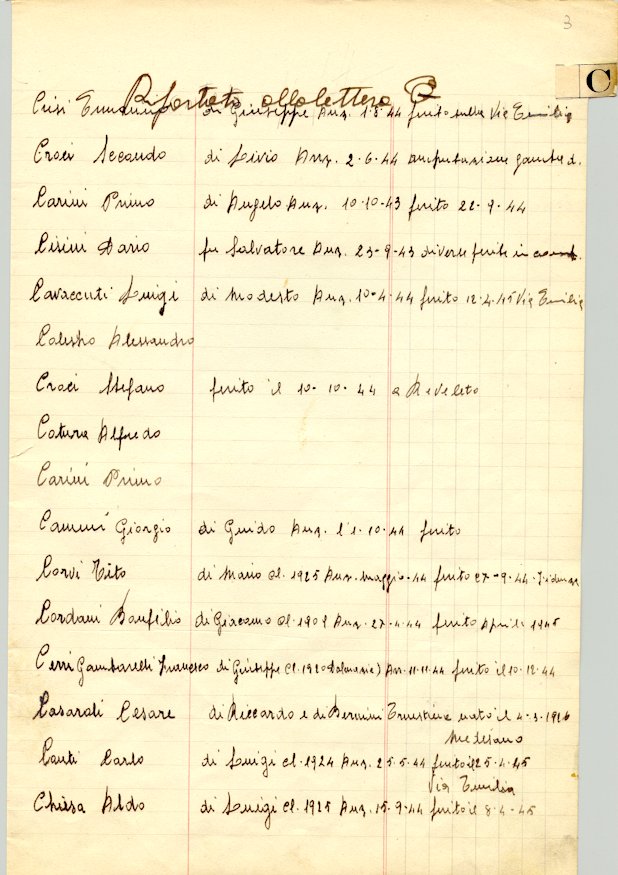 3
C
Riportato alla lettera C
Crisi Emanuino di Giuseppe Anz. 1.8.44 ferito sulla Via Emilia
Croci Secondo di Livio Anz. 2.6.44 amputazione gamba d.
Carini Primo di Angelo Anz. 10-10-43 ferito 22-9-44
Cisini Dario fu Salvatore Anz. 23-9-43 diverse ferite in
Cavaccuti Luigi di Modesto Anz. 10-4-44 ferito 12.4.45 Via Emilia
Calestro Alessandro
Croci Stefano ferito il 10-10-44 a Reveleto
Catura Alfredo
Carini Primo
Cammi Giorgio di Guido Anz. l'1-10-44 ferito
Corvi Tito di Mario cl. 1925 Anz. maggio-44 ferito 27-9-44. Fidenza
Cordani Bonfilio di Giacomo cl. 1902 Anz. 27.4.44 ferito Aprile 1945
Cerri Gambarelli Francesco di Giuseppe Cl. 1920 Anz. 11.11.44 ferito il 10.12.44
Casarali Cesare di Riccardo e di Bernini Ernestina nato il 4-3-1926
Medesano
Canti Carlo di Luigi cl. 1924 Anz. 25.5.44 ferito il 25.4.45
Via Emilia
Chiesa Aldo di Luigi Cl. 1925 Anz. 15-9-44 ferito il 8-4-45